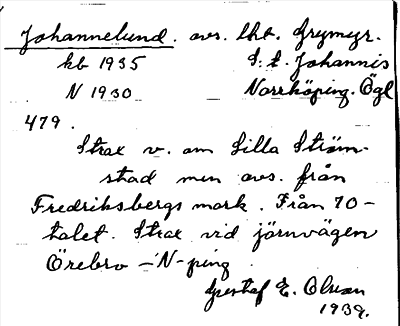 Johannelund. avs. lht. Grymyr.
kb 1935 S:t Johannis
N 1930 Norrköping. Ögl
479.
Strax v. om Lilla Ström-
stad men avs. från
Fredriksbergs mark. Från 70-
talet. Strax vid järnvägen
Örebro - N-ping
Gustaf E. Olson
1939.